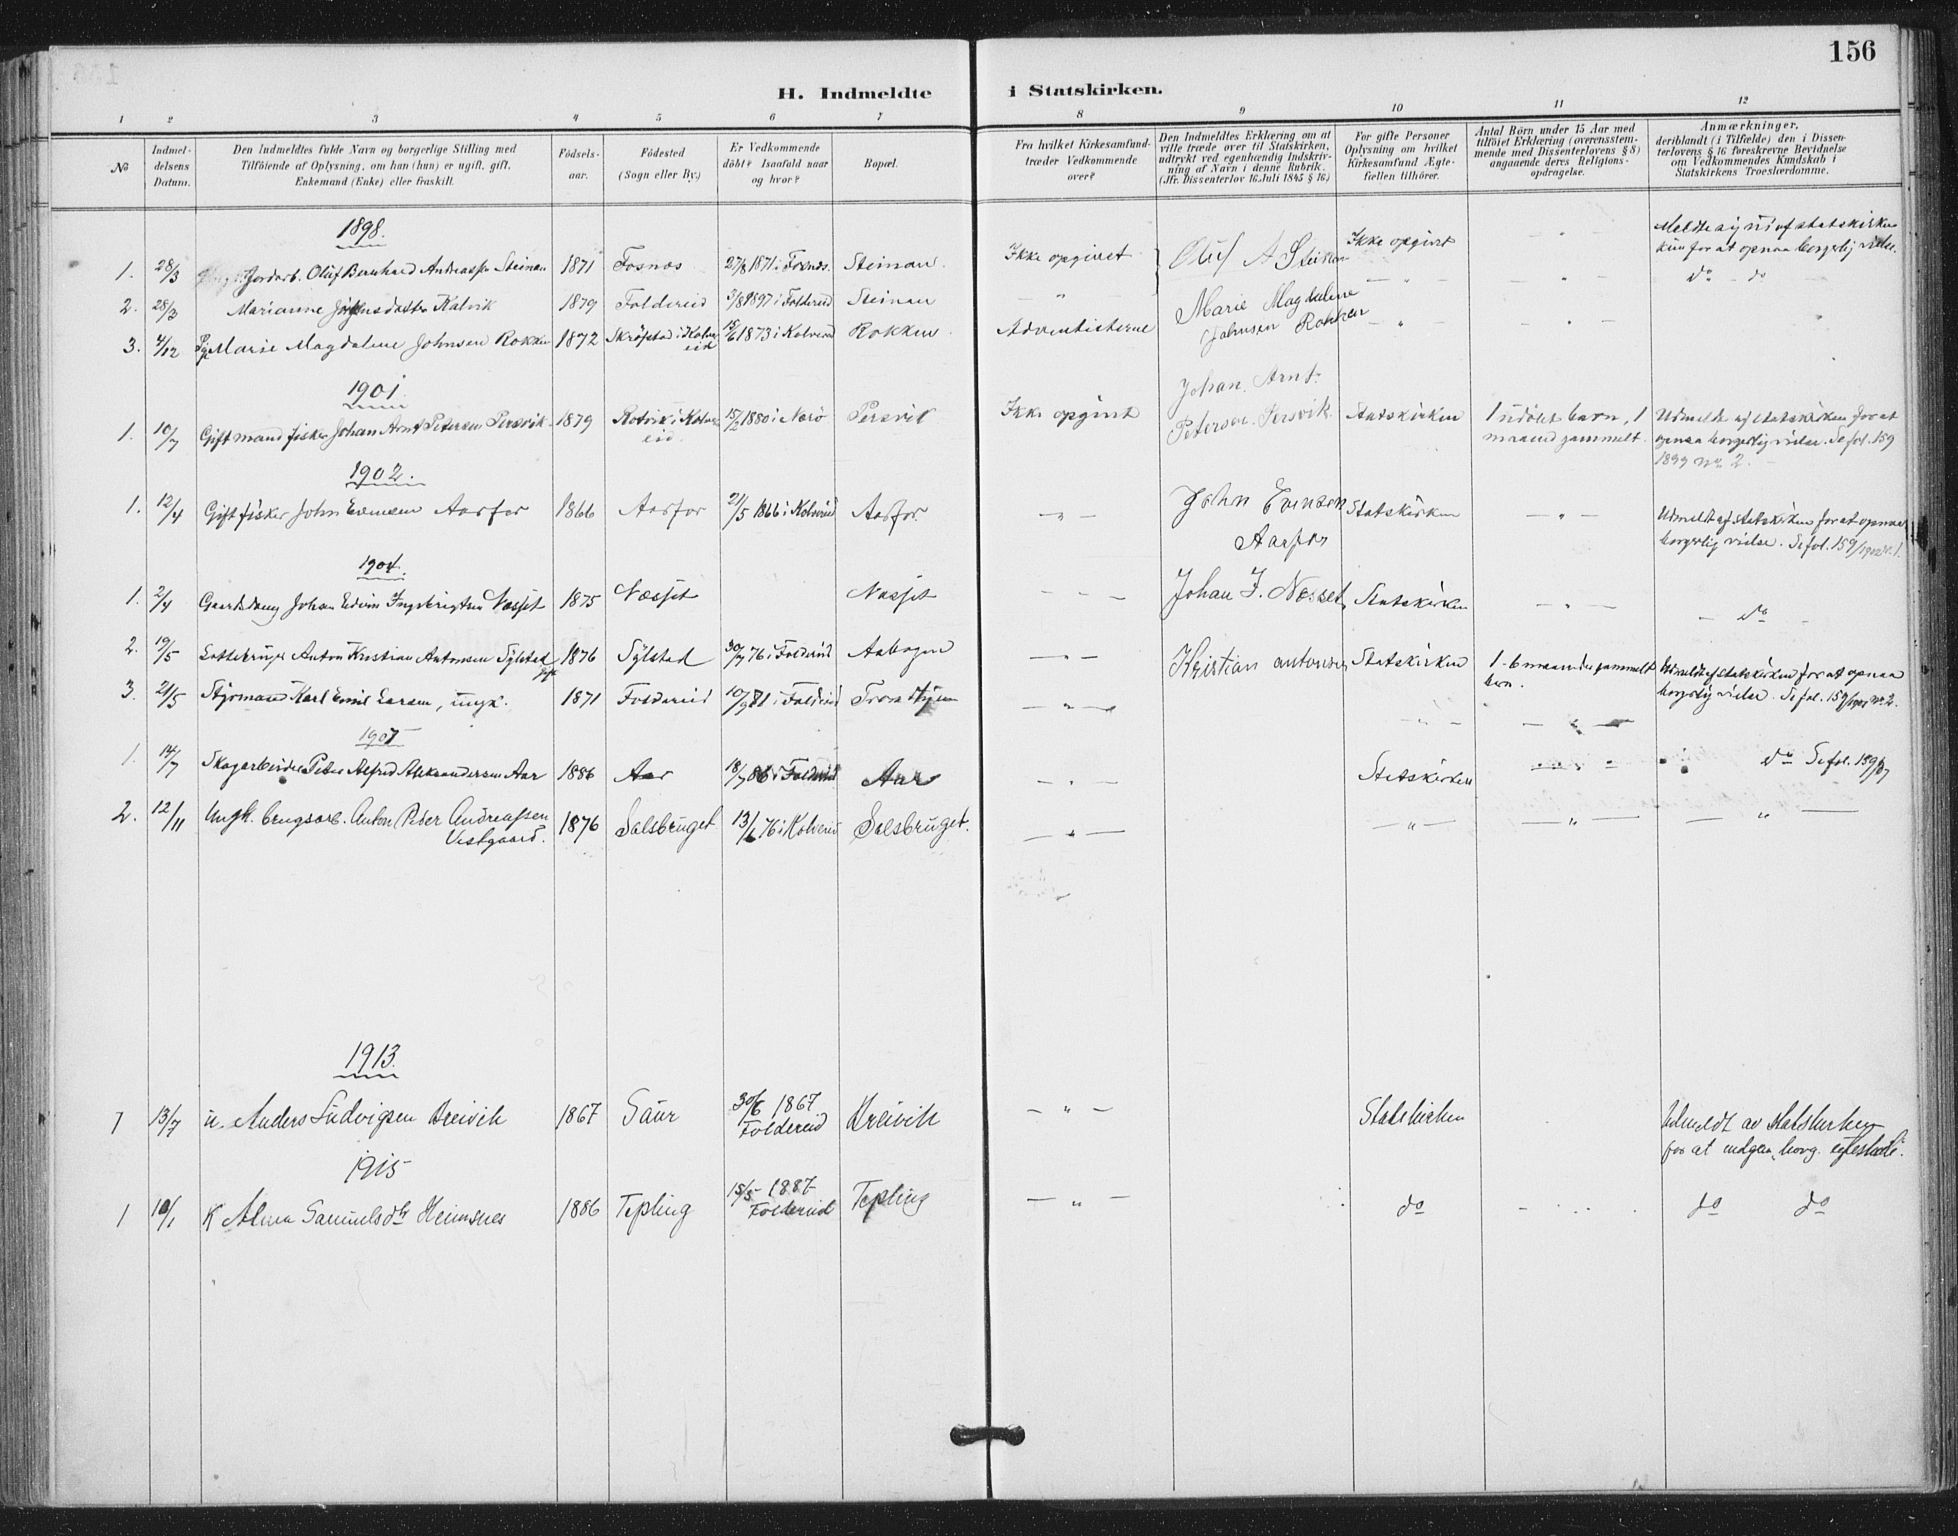 156
H. Indmeldte i Statskirken.
1 2 3 4 5 6 7 8 9 10 11 12
№
Indmel-
delsens
Datum.
Den Indmeldtes fulde Navn og borgerlige Stilling med
Tilföiende af Oplysning, om han (hun) er ugift, gift,
Enkemand (Enke) eller fraskilt.
Födsels-
aar.
Födested
(Sogn eller By.)
Er Vedkommende
döbt? Isaafald naar
og hvor?
Bopæl.
Fra hvilket Kirkesamfund
træder Vedkommende
over?
Den Indmeldtes Erklæring om at
ville træde over til Statskirken,
udtrykt ved egenhændig Indskriv-
ning af Navn i denne Rubrik.
(Jfr. Dissenterlov 16 Juli 1845 § 16.)
For gifte Personer
Oplysning om hvilket
Kirkesamfund Ægte-
fællen tilhörer.
Antal Börn under 15 Aar med
tilföiet Erklæring (overensstem-
mende med Dissenterlovens § 8)
angaaende deres Religions-
opdragelse.
Anmærkninger,
deriblandt (i Tilfælde) den i Dissen-
terlovens § 16 foreskrevne Bevidnelse
om Vedkommendes Kundskab i
Statskirkens Troeslærdomme.
1898.
1. 28/3 Jordarb. Oluf Bernhard Andreass. Steinan 1871 Fosnæs 27/8 1871 i Fosnæs. Steinan. Ikke opgivet Oluf A Steinan Ikke opgivet - " - Meldte sig ud af statskirken
kun for at opnaa borgerlig vielse.
2. 28/3 Marianne Kalvik 1879 Foldereid 3/8 1897 i Foldereid Steinan — " — — " — - " - do - do
3. 4/12 Pg. Marie Magdalene Johnsen Rokken 1872 Skröjstad i Kolver
eid 15/6 1873 i Kolvereid Rokken Adventisterne Marie Magdalene
Johnsen Rokken — " — — " —
1901.
1. 10/7 Gift mand fisker Johan Arnt Petersen Persvik 1879 Rotvik i Kolver
eid. 15/2 1880 i Nærö Persvik Ikke opgivet Johan Arnt
Petersen Persvik. Statskirken 1 udöbt barn, 1
maaned gammelt. Udmeldt af statskirken for at
opnaa borgerlig vielse. Se fol. 159
1899 No 2.
1902.
1. 12/4 Gift fisker John Evensen Aarfor 1866 Aarfor 21/5 1866 i Kolvereid Aarfor. — " — John Evensen
Aarfor Statskirken — " — Udmeldt af statskirken for at opnaa
borgerlig vielse. Se fol. 159/1902 N. 1.
1904.
1. 2/4 Gaardbrug Johan Edvin Ingebrigtsen Næsset 1875 Næsset Næsset — — — Johan I. Nesset Statskirken — " — — do —
2. 19/5 Anton Kristian Antonsen Sylstad
gift 1876 Sylstad 30/7 76 i Foldereid Aabogen — " — Kristian antonsen Statskirken 1 - 6 maaneder gammelt
barn. Udmeldt af statskirken for at opnaa
borgerlig vielse. Se fol. 159/1901 No 2.
3. 21/5 Styrmand Karl Emil Larsen, ungk. 1871 Foldereid 10/9 81 i Foldereid Trondhjem — " — — " — — " —
1907
1. 14/7 Skogarbeider Peter Alfred Aleksandersen Aar 1886 Aar 18/7 86 i Foldereid Aar — " — Statskirken — " — do Se fol. 159/07
2. 12/11 Ungk. brugsarb. Anton Peder Andreassen
Vestgaard. 1876 Salsbruget 13/6 76 i Kolvereid Salsbruget. — " — — " — — " — — " —
1913.
1 13/7 u. Anders Ludvigsen Kreivik 1867 Saur 30/6 1867
Foldereid Kreivik — " — Statskirken Udmeldt av statskirken
for at indgaa borg. egteskab.
1915
1 10/1 K Alma Samuelsdtr Heimsnes 1886 Tepling 15/5 1887
Foldereid Tepling — " — do do do